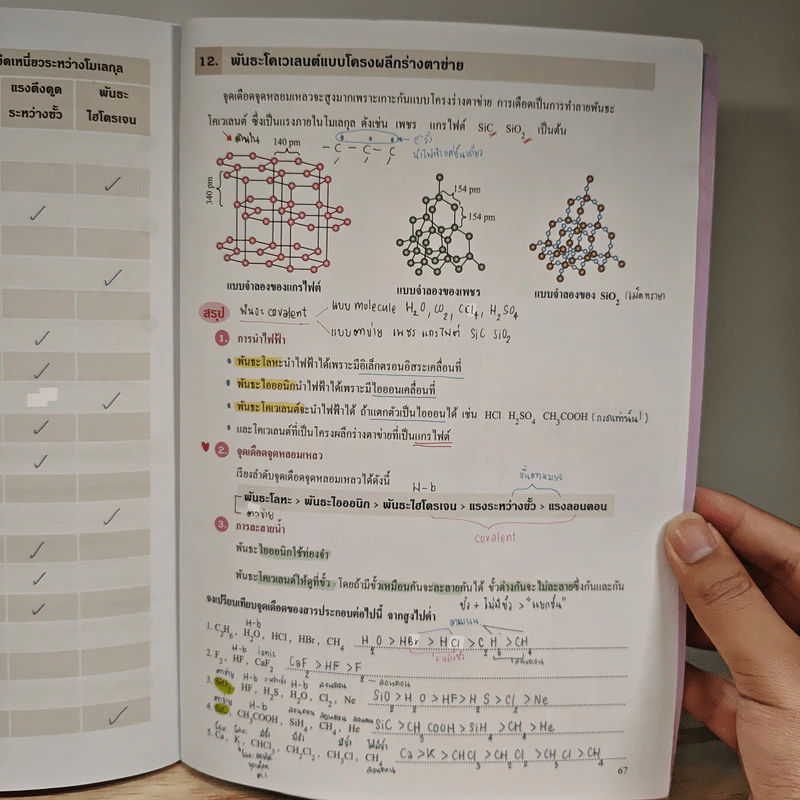 ยึดเหนี่ยวระหว่างโมเลกุล
แรงดึงดูดระหว่างขั้ว
พันธะไฮโดรเจน
12. พันธะโคเวเลนต์แบบโครงผลึกร่างตาข่าย
จุดเดือดจุดหลอมเหลวจะสูงมากเพราะเกาะกันแบบโครงร่างตาข่าย การเดือดเป็นการทำลายพันธะ
โคเวเลนต์ ซึ่งเป็นแรงภายในโมเลกุล ดังเช่น เพชร แกรไฟต์ SiC SiO₂ เป็นต้น
140 pm
– C – C – C
340 pm
154 pm
154 pm
แบบจำลองของแกรไฟต์
แบบจำลองของเพชร
แบบจำลองของ SiO₂ (เม็ดทราย)
สรุป พันธะ covalent
แบบ molecule H₂O, CO₂, CCl₄, H₂SO₄
แบบตาข่าย เพชร แกรไฟต์ SiC SiO₂
1. การนำไฟฟ้า
• พันธะโลหะนำไฟฟ้าได้เพราะมีอิเล็กตรอนอิสระเคลื่อนที่
• พันธะไอออนิกนำไฟฟ้าได้เพราะมีไอออนเคลื่อนที่
• พันธะโคเวเลนต์จะนำไฟฟ้าได้ ถ้าแตกตัวเป็นไอออนได้ เช่น HCl H₂SO₄ CH₃COOH (กรดเท่านั้น!)
• และโคเวเลนต์ที่เป็นโครงผลึกร่างตาข่ายที่เป็นแกรไฟต์
2. จุดเดือดจุดหลอมเหลว
เรียงลำดับจุดเดือดจุดหลอมเหลวได้ดังนี้
H-b
พันธะโลหะ > พันธะไอออนิก > พันธะไฮโดรเจน > แรงระหว่างขั้ว > แรงลอนดอน
ตาข่าย
covalent
3. การละลายน้ำ
พันธะไอออนิกใช้ท่องจำ
พันธะโคเวเลนต์ให้ดูที่ขั้ว โดยถ้ามีขั้วเหมือนกันจะละลายกันได้ ขั้วต่างกันจะไม่ละลายซึ่งกันและกัน
ขั้ว + ไม่มีขั้ว > "แยกชั้น"
จงเปรียบเทียบจุดเดือดของสารประกอบต่อไปนี้ จากสูงไปต่ำ
H-b
1. C₂H₆, H₂O, HCl, HBr, CH₄ H₂O > HBr > HCl > C₂H₆ > CH₄
H-b ionic
2. F₂, HF, CaF₂ CaF₂ > HF > F₂
ลอนดอน
ตาข่าย H-b ระหว่างขั้ว H-b ลอนดอน
3. SiO₂, HF, H₂S, H₂O, Cl₂, Ne SiO₂ > H₂O > HF > H₂S > Cl₂ > Ne
ตาข่าย H-b ลอนดอน ลอนดอน ลอนดอน
4. SiC, CH₃COOH, SiH₄, CH₄, He SiC > CH₃COOH > SiH₄ > CH₄ > He
โลหะ โลหะ มีขั้ว มีขั้ว มีขั้ว ไม่มีขั้ว
5. Ca, K, CHCl₃, CH₂Cl₂, CH₃Cl, CH₄ Ca > K > CHCl₃ > CH₂Cl₂ > CH₃Cl > CH₄
ลอนดอน
67